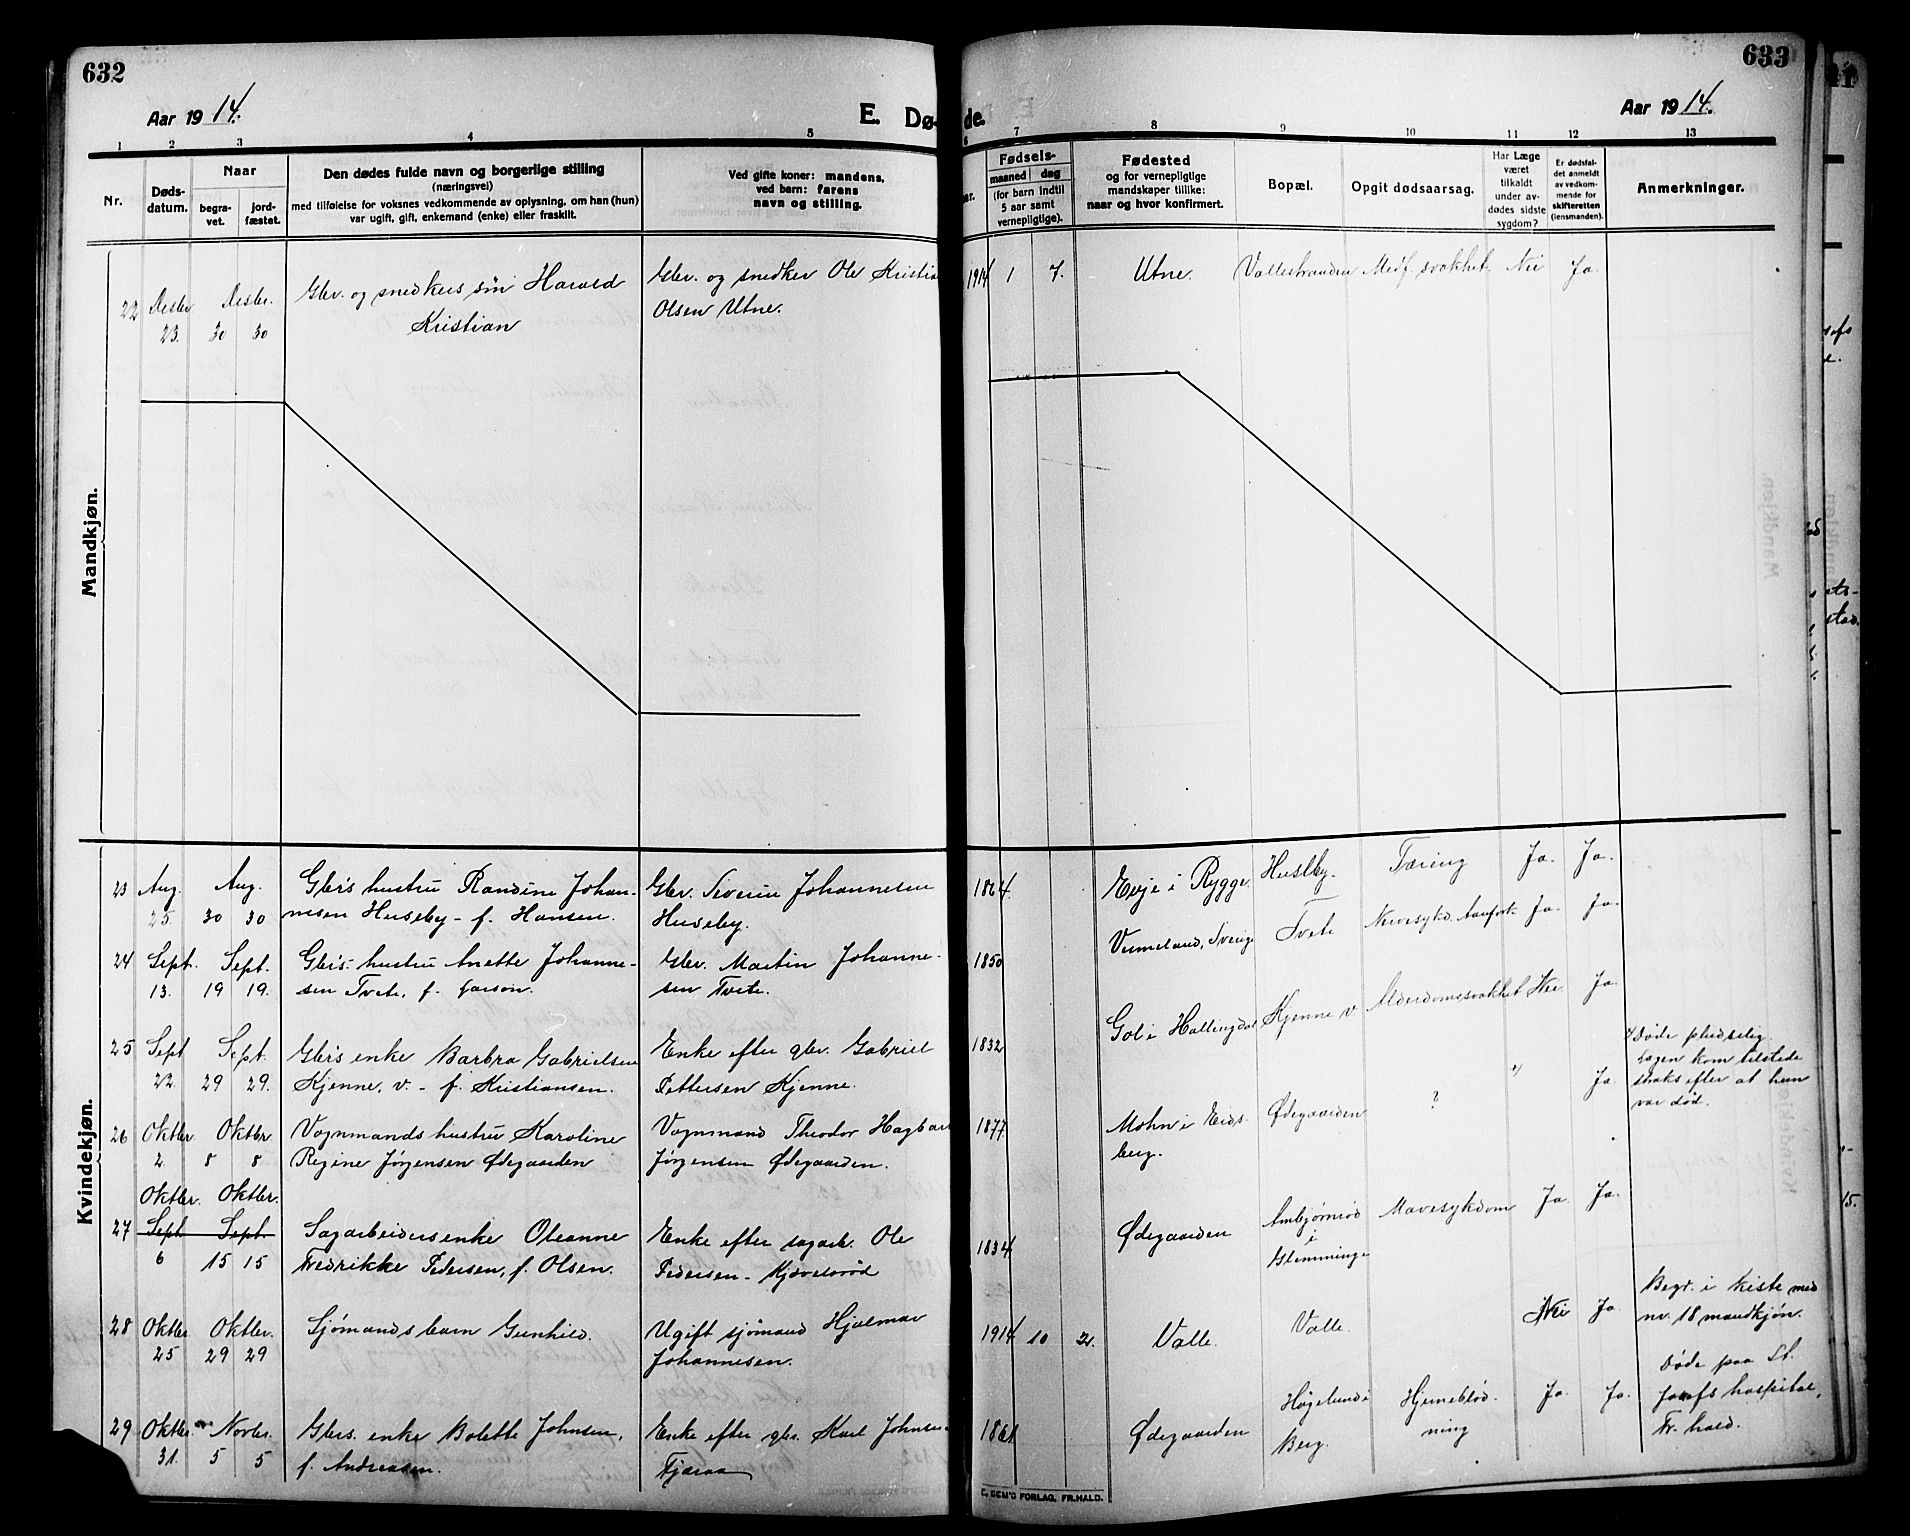 632
Aar 1914.
E. Dø-
1 2 3 4 5
Nr.
Døds-
datum.
Naar
begra-
vet.
jord-
fæstet.
Den dødes fulde navn og borgerlige stilling
(næringsvei)
med tilføielse for voksnes vedkommende av oplysning, om han (hun)
var ugift, gift, enkemand (enke) eller fraskilt.
Ved gifte koner: mandens,
ved barn: farens
navn og stilling.
Mandkjøn.
22 Desbr. Desbr. Gbr. og snedkers søn Harald Gbr. og snedker Ole Kristia
23. 30 30 Kristian Olsen Utne.
Kvindekjøn.
23 Aug. Aug. Gbr's hustru Randine Johan- Gbr. Severin Johannesen
25. 30 30 nesen Huseby - f. Hansen. Huseby.
24 Sept. Sept. Gbr's hustru Anette Johanne- Gbr. Martin Johanne-
13. 19 19. sen Tvete, f. Larson. sen Tvete.
25 Sept Sept. Gbr's enke Barbra Gabrielsen Enke efter gbr. Gabriel
22. 29 29. Kjenne, v. - f. Kristiansen. Pettersen Kjenne.
26 Oktbr. Oktbr Vognmands hustru Karoline Vognmand Theodor Hagbar
2. 8 8. Regine Jørgensen Ødegaarden Jørgensen Ødegaarden.
Oktbr. Oktbr.
27 Sept. Sept. Sagarbeidersenke Oleanne Enke efter sagarb. Ole
6 15 15 Fredrikke Pedersen, f. Olsen. Pedersen - Kjævelsrød
28 Oktbr Oktbr. Sjømandsbarn Gunhild. Ugift sjømand Hjalmar
25 29 29 Johannesen.
29 Oktbr. Novbr. Gbrs. enke Bolette Johnsen, Enke efter gbr. Karl Johnsen
31. 5 5 f. Andreasen. Fjæraa
633
Aar 1914.
de.
6 7 8 9 10 11 12 13
ar.
Fødsels-
maaned dag
(for barn indtil
5 aar samt
vernepligtige).
Fødested
og for vernepligtige
mandskaper tillike:
naar og hvor konfirmert.
Bopæl.
Opgit dødsaarsag.
Har Læge
været
tilkaldt
under av-
dødes sidste
sygdom?
Er dødsfal-
det anmeldt
av vedkom-
mende for
skifteretten
(lensmanden).
Anmerkninger.
1914 1 7. Utne. Vallestranden Medf. svakhet. Nei Ja.
1864. Evje i Rygge. Huseby. Tæring Ja. Ja.
1850 Vermeland, Sverige Tvete Nervesykd. Ja. Ja.
1832 Gol i Hallingdal Kjenne v. Alderdomssvakhet Nei. Ja.
1877 Mohn i Eids- Ødegaarden ? " Ja.
berg.
Døde pludselig.
Lægen kom tilstede
straks efter at hun
var død.
1834 Ødegaarden Ambjørnrød Mavesykdom Ja. Ja.
i
Glemminge
1914 10 2. Valle. Valle. Nei Ja.
Begr. i kiste med
nr. 18 mandkjøn.
1861 Ødegaarden Høgelund i Hjerneblød- Ja. Ja.
Berg. ning
Døde paa St.
Josefs hospital,
Fr.hald.
E. SEM'S FORLAG, FR.HALD.